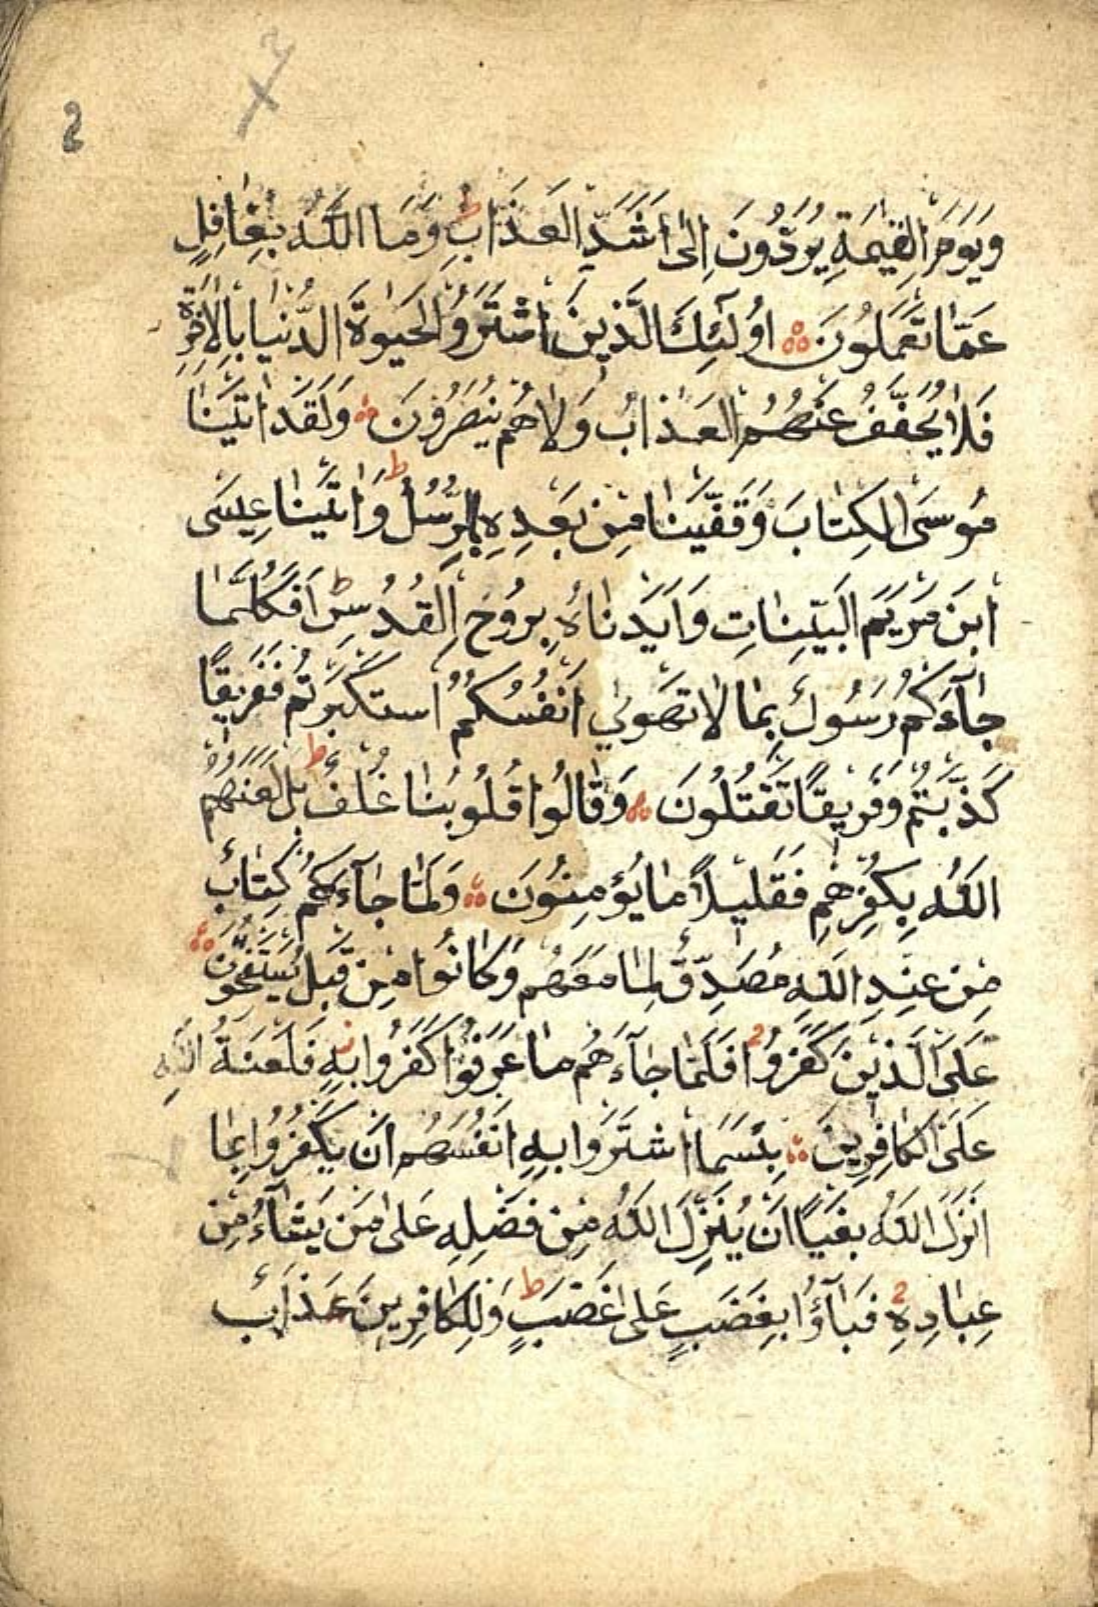 وَيَوْمَ الْقِيٰمَةِ يُرَدُّونَ اِلٰى اَشَدِّ الْعَذَابِ ط وَمَا اللّٰهُ بِغَافِلٍ
عَمَّا تَعْمَلُونَ اُولٰئِكَ الَّذِينَ اشْتَرَوُ الْحَيٰوةَ الدُّنْيَا بِالْاٰخِرَةِ
فَلَا يُخَفَّفُ عَنْهُمُ الْعَذَابُ وَلَا هُمْ يُنْصَرُونَ وَلَقَدْ اٰتَيْنَا
مُوسَى الْكِتَابَ وَقَفَّيْنَا مِنْ بَعْدِهِ بِالرُّسُلِ ط وَاٰتَيْنَا عِيسَى
ابْنَ مَرْيَمَ الْبَيِّنَاتِ وَاَيَّدْنَاهُ بِرُوحِ الْقُدُسِ ط اَفَكُلَّمَا
جَآءَكُمْ رَسُولٌ بِمَا لَا تَهْوٰى اَنْفُسُكُمُ اسْتَكْبَرْتُمْ فَفَرِيقًا
كَذَّبْتُمْ وَفَرِيقًا تَقْتُلُونَ وَقَالُوا قُلُوبُنَا غُلْفٌ ط بَلْ لَعَنَهُمُ
اللّٰهُ بِكُفْرِهِمْ فَقَلِيلًا مَا يُؤْمِنُونَ وَلَمَّا جَآءَهُمْ كِتَابٌ
مِنْ عِنْدِ اللّٰهِ مُصَدِّقٌ لِمَا مَعَهُمْ وَكَانُوا مِنْ قَبْلُ يَسْتَفْتِحُونَ
عَلَى الَّذِينَ كَفَرُوا فَلَمَّا جَآءَهُمْ مَا عَرَفُوا كَفَرُوا بِهِ فَلَعْنَةُ اللّٰهِ
عَلَى الْكَافِرِينَ بِئْسَمَا اشْتَرَوْا بِهِ اَنْفُسَهُمْ اَنْ يَكْفُرُوا بِمَا
اَنْزَلَ اللّٰهُ بَغْيًا اَنْ يُنَزِّلَ اللّٰهُ مِنْ فَضْلِهِ عَلٰى مَنْ يَشَآءُ مِنْ
عِبَادِهِ فَبَآؤُا بِغَضَبٍ عَلٰى غَضَبٍ ط وَلِلْكَافِرِينَ عَذَابٌ